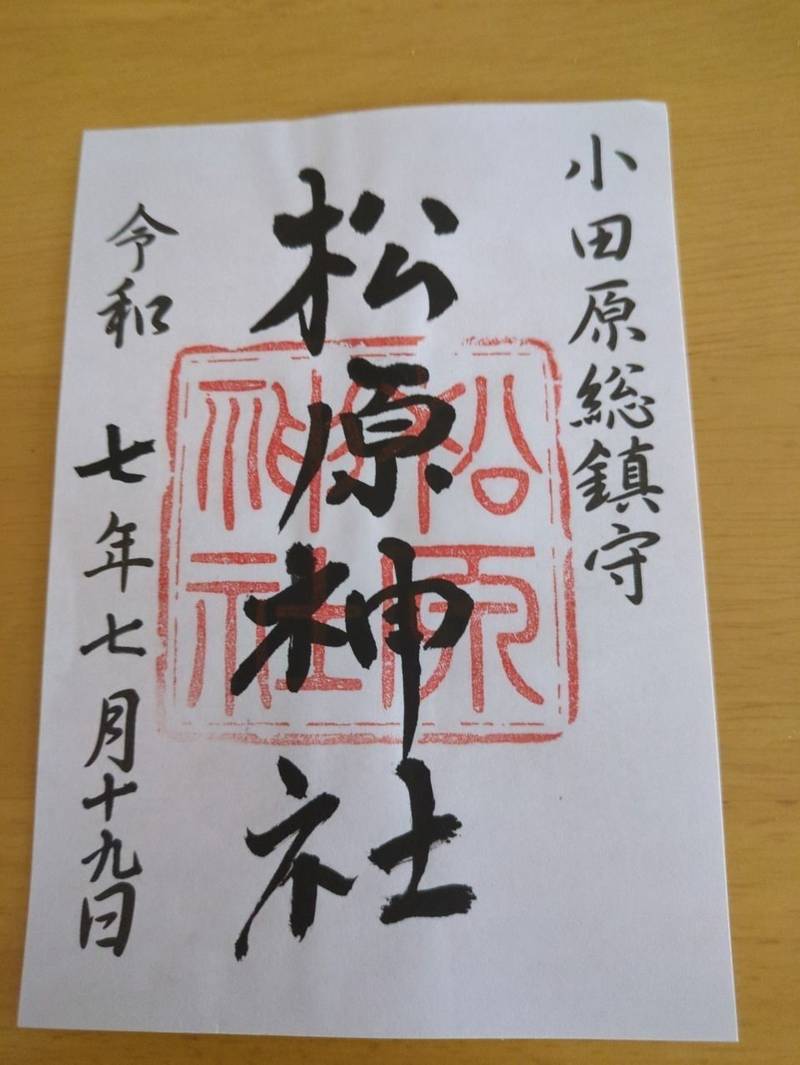 小田原総鎮守
松原神社
松原神社
令和 七年七月十九日